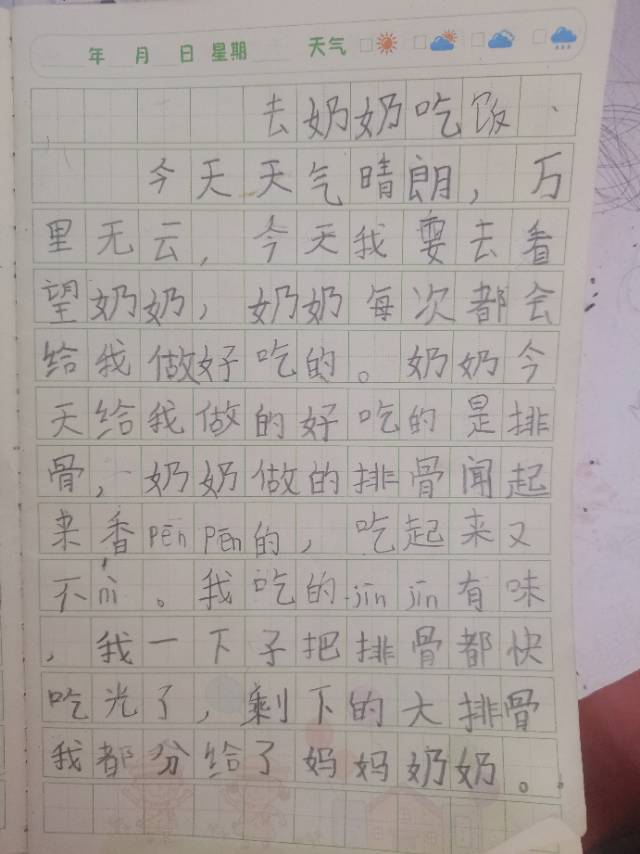 年 月 日 星期 天气
去奶奶吃饭
今天天气晴朗，万
里无云，今天我要去看
望奶奶，奶奶每次都会
给我做好吃的。奶奶今
天给我做的好吃的是排
骨，奶奶做的排骨闻起
来香pēn pēn的，吃起来又
不nì。我吃的jīn jīn有味
，我一下子把排骨都快
吃光了，剩下的大排骨
我都分给了妈妈奶奶。